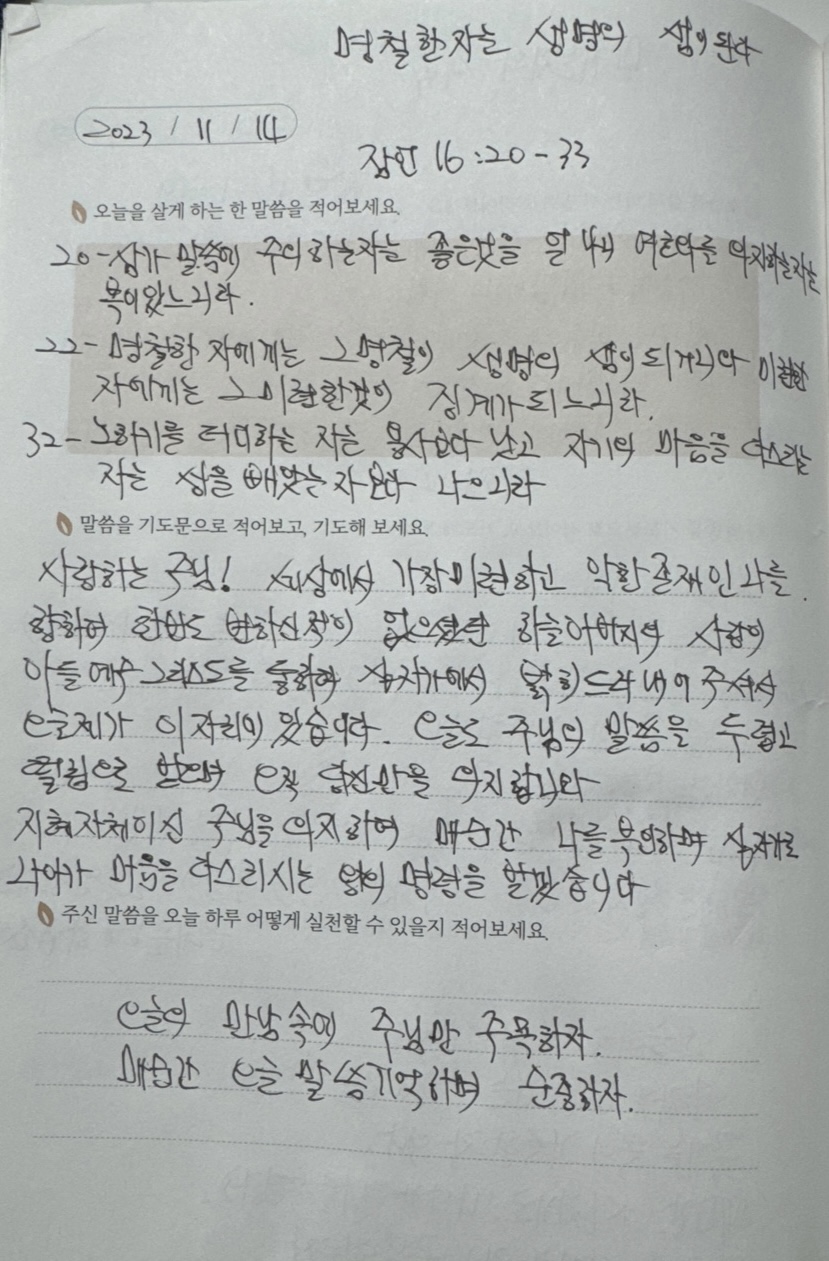 명철한자는 생명의 샘이 된다
2023 / 11 / 14
잠언 16:20-33
오늘을 살게 하는 한 말씀을 적어보세요.
20-삼가 말씀에 주의하는자는 좋은것을 얻나니 여호와를 의지하는자는
복이있느니라.
22-명철한 자에게는 그명철이 생명의 샘이 되거니와 미련한
자에게는 그미련한것이 징계가 되느니라.
32-노하기를 더디하는 자는 용사보다 낫고 자기의 마음을 다스리는
자는 성을 빼앗는자보다 나으니라
말씀을 기도문으로 적어보고, 기도해 보세요.
사랑하는 주님! 세상에서 가장미련하고 악한존재인 나를
향하여 한번도 변하신적이 없으셨던 하늘아버지의 사랑이
아들예수그리스도를 통하여 십자가에서 밝히드러내어 주셔서
오늘제가 이자리에 있습니다. 오늘도 주님의 말씀을 두렵고
떨림으로 받으며 오직 당신만을 의지합니다
지혜자체이신 주님을 의지하여 매순간 나를부인하며 십자가로
나아가 마음을 다스리시는 왕의 명령을 받겠습니다
주신 말씀을 오늘 하루 어떻게 실천할 수 있을지 적어보세요.
오늘의 만남속에 주님만 주목하자.
매순간 오늘 말씀기억하며 순종하자.